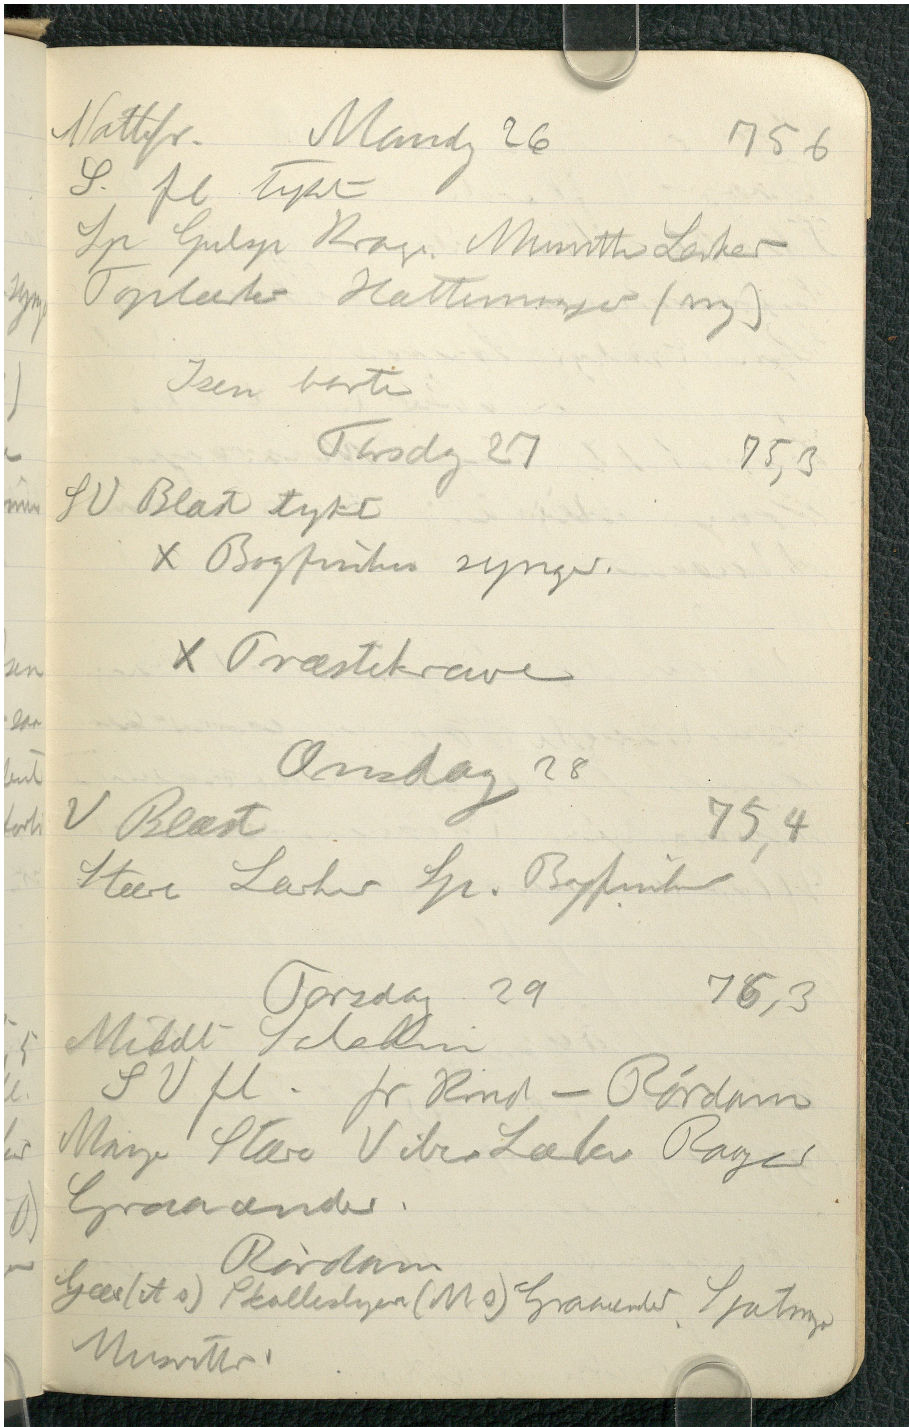 Nattefr. Mandg 26 756
S. fl tykt
Sp Gulsp Krage. Musvitte Lærker
Toplærker Hættemaager (ny)
Isen borte
Tirsdg 27 75,3
SV Blæst tykt
X Bogfinker synger.
X Præstekrave
Onsdag 28
V Blæst 75,4
Stære Lærker Sp. Bogfinker
Torsdag 29 76,3
Middl Solskin
SV fl. fr Rind — Rørdam
Mange Stære Viber Lærker Raager
Graaænder.
Rørdam
Gæs Graaænder.
Musvitter.